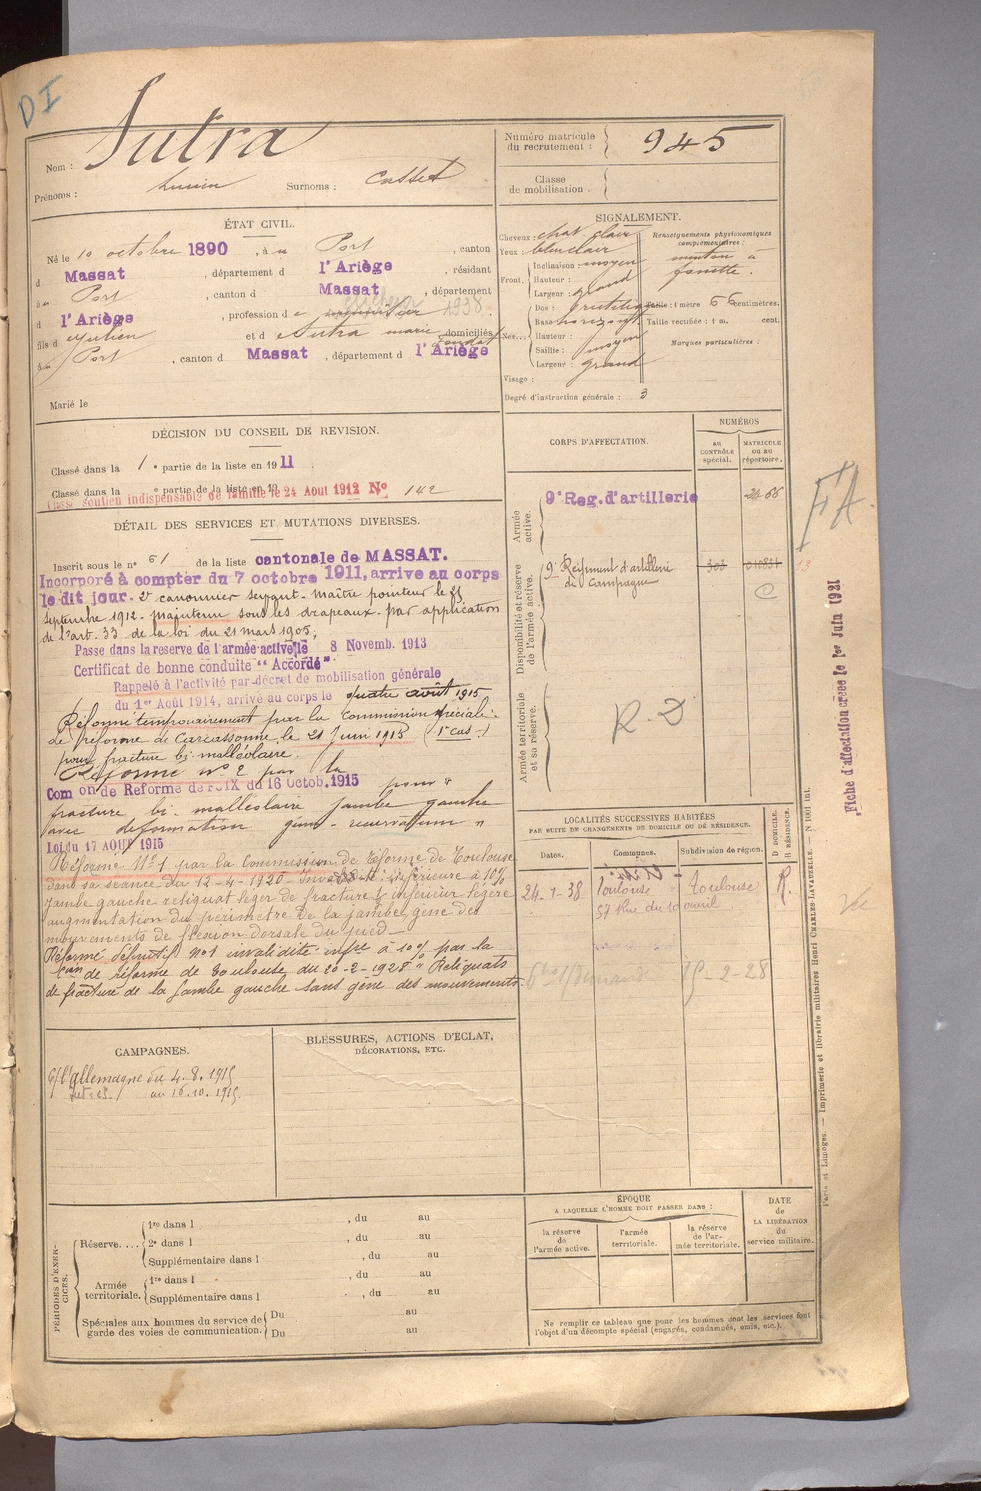 DI
Nom : Sutra
Prénoms : Lucien Surnoms : Casset
Numéro matricule du recrutement : 945
Classe de mobilisation :
ÉTAT CIVIL.
Né le 10 octobre 1890, à Port, canton
d Massat, département d l'Ariège, résidant
à Port, canton d Massat, département
d l'Ariège, profession d 1938.
fils d Julien et d Sutra marie domiciliés
à Port, canton d Massat, département d l'Ariège
Marié le
SIGNALEMENT.
Cheveux : chat. clair
Yeux : bleu clair
Front. Inclinaison : moyen
Hauteur : grand
Largeur :
Nez... Dos : rectiligne
Base horizont
Hauteur :
Saillie : moyen
Largeur : grand
Visage :
Degré d'instruction générale : 3
Renseignements physionomiques complémentaires :
menton à
fossette.
Taille : 1 mètre 66 centimètres.
Taille rectifiée : 1 m. cent.
Marques particulières :
DÉCISION DU CONSEIL DE REVISION.
Classé dans la 1e partie de la liste en 1911.
Classé dans la e partie de la liste en 19
Classé soutien indispensable de famille le 24 Aout 1912 No 142
DÉTAIL DES SERVICES ET MUTATIONS DIVERSES.
Inscrit sous le n° 61 de la liste cantonale de MASSAT.
Incorporé à compter du 7 octobre 1911, arrive au corps
le dit jour. 2e canonnier servant. Maître pointeur le 25
septembre 1912. maintenu sous les drapeaux par application
de l'art. 33 de la loi du 21 mars 1905,
Passe dans la reserve de l'armée active le 8 Novemb. 1913
Certificat de bonne conduite "Accordé"
Rappelé à l'activité par décret de mobilisation générale
du 1er Août 1914, arrivé au corps le quatre août 1915
Réformé temporairement par la Commission spéciale
de réforme de Carcassonne le 21 Juin 1915 (1er cas.)
pour fracture bi malléolaire.
Réformé n° 2 par la
Com on de Reforme de FOIX du 16 Octob. 1915 pour
fracture bi. malléolaire jambe gauche
avec déformation genu-recurvatum "
Loi du 17 AOUT 1915
Réformé N° 1 par la Commission de Réforme de Toulouse
dans sa séance du 12-4-1920 - Invalidité inférieure à 10%
jambe gauche reliquat léger de fracture inférieur légère
augmentation du périmètre de la jambe, gêne des
mouvements de flexion dorsale du pied
Réformé définitif N° 1 invalidité infre à 10% par la
Con de réforme de Toulouse du 20-2-1928 " Reliquats
de fracture de la jambe gauche sans gêne des mouvements.
CORPS D'AFFECTATION.
NUMÉROS
au CONTRÔLE spécial.
MATRICULE ou au répertoire.
Armée active.
9e Reg. d'artillerie 2466
Disponibilité et réserve de l'armée active.
9e Régiment d'artillerie
de campagne
303
C
Armée territoriale et sa réserve.
R.D
FA
Fiche d'affectation créée le 1er Juin 1921
LOCALITÉS SUCCESSIVES HABITÉES
PAR SUITE DE CHANGEMENTS DE DOMICILE OU DE RÉSIDENCE.
Dates. Communes. Subdivision de région. D DOMICILE. R RÉSIDENCE.
24-1-38 Toulouse Toulouse R.
57 Rue du 10 avril
-2-28
CAMPAGNES.
C/ l'allemagne du 4.8.1915
au 16.10.1915.
BLESSURES, ACTIONS D'ÉCLAT,
DÉCORATIONS, ETC.
PÉRIODES D'EXERCICES.
Réserve.... 1re dans l , du au
2e dans l , du au
Supplémentaire dans l , du au
Armée territoriale. 1re dans l , du au
Supplémentaire dans l , du au
Spéciales aux hommes du service de garde des voies de communication. Du au
Du au
ÉPOQUE
A LAQUELLE L'HOMME DOIT PASSER DANS :
la réserve de l'armée active.
l'armée territoriale.
la réserve de l'armée territoriale.
DATE de LA LIBÉRATION du service militaire.
Ne remplir ce tableau que pour les hommes dont les services font
l'objet d'un décompte spécial (engagés, condamnés, omis, etc.).
Paris et Limoges. — Imprimerie et librairie militaires Henri CHARLES-LAVAUZELLE. — N 1001 int.